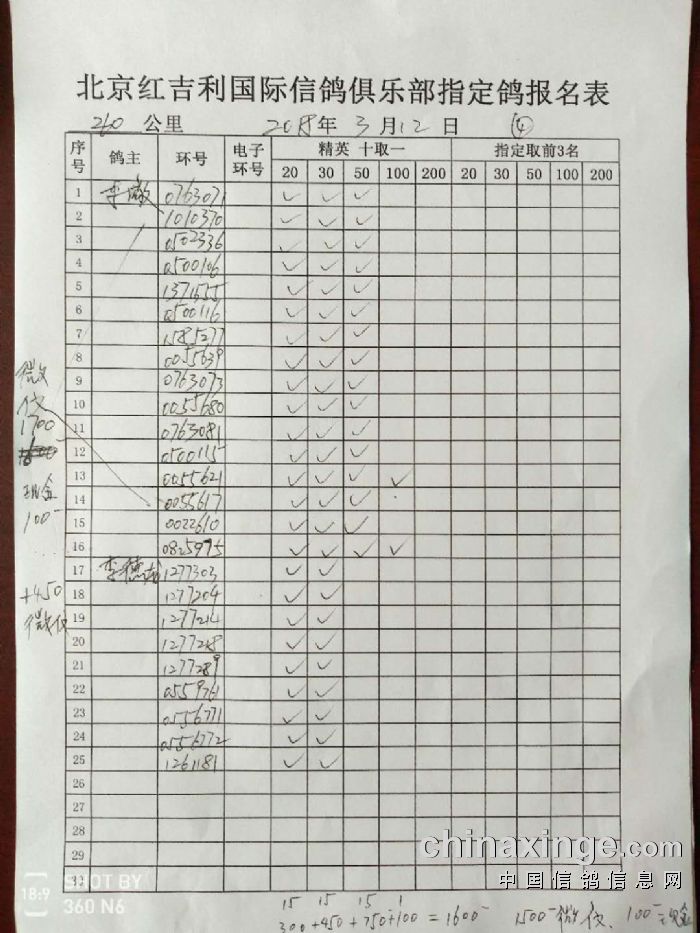 北京红吉利国际信鸽俱乐部指定鸽报名表
260 公里 2018年 3月12日 ④
序号 鸽主 环号 电子环号 精英 十取一 指定取前3名
20 30 50 100 200 20 30 50 100 200
1 李 0763071 ✓ ✓ ✓
2 1010370 ✓ ✓ ✓
3 0502336 ✓ ✓ ✓
4 0500106 ✓ ✓ ✓
5 1371555 ✓ ✓ ✓
6 0500116 ✓ ✓ ✓
7 1585277 ✓ ✓ ✓
8 0055639 ✓ ✓ ✓
9 0763073 ✓ ✓ ✓
10 0055680 ✓ ✓ ✓
11 0763081 ✓ ✓ ✓
12 0500115 ✓ ✓ ✓
13 0055621 ✓ ✓ ✓ ✓
14 0055617 ✓ ✓ ✓
15 0022610 ✓ ✓ ✓
16 0825975 ✓ ✓ ✓ ✓
17 李德 1277303 ✓ ✓
18 1277204 ✓ ✓
19 1277214 ✓ ✓
20 1277218 ✓ ✓
21 1277289 ✓ ✓
22 0559761 ✓ ✓
23 0556771 ✓ ✓
24 0556772 ✓ ✓
25 1261181 ✓ ✓
26
27
28
29
30
微
1700
现金
100-
+450
微
15 15 15 1
300+450+750+100=1600- 1500-微 100-现金
chinaxinge.com
中国信鸽信息网
18:9
SHOT BY
360 N6